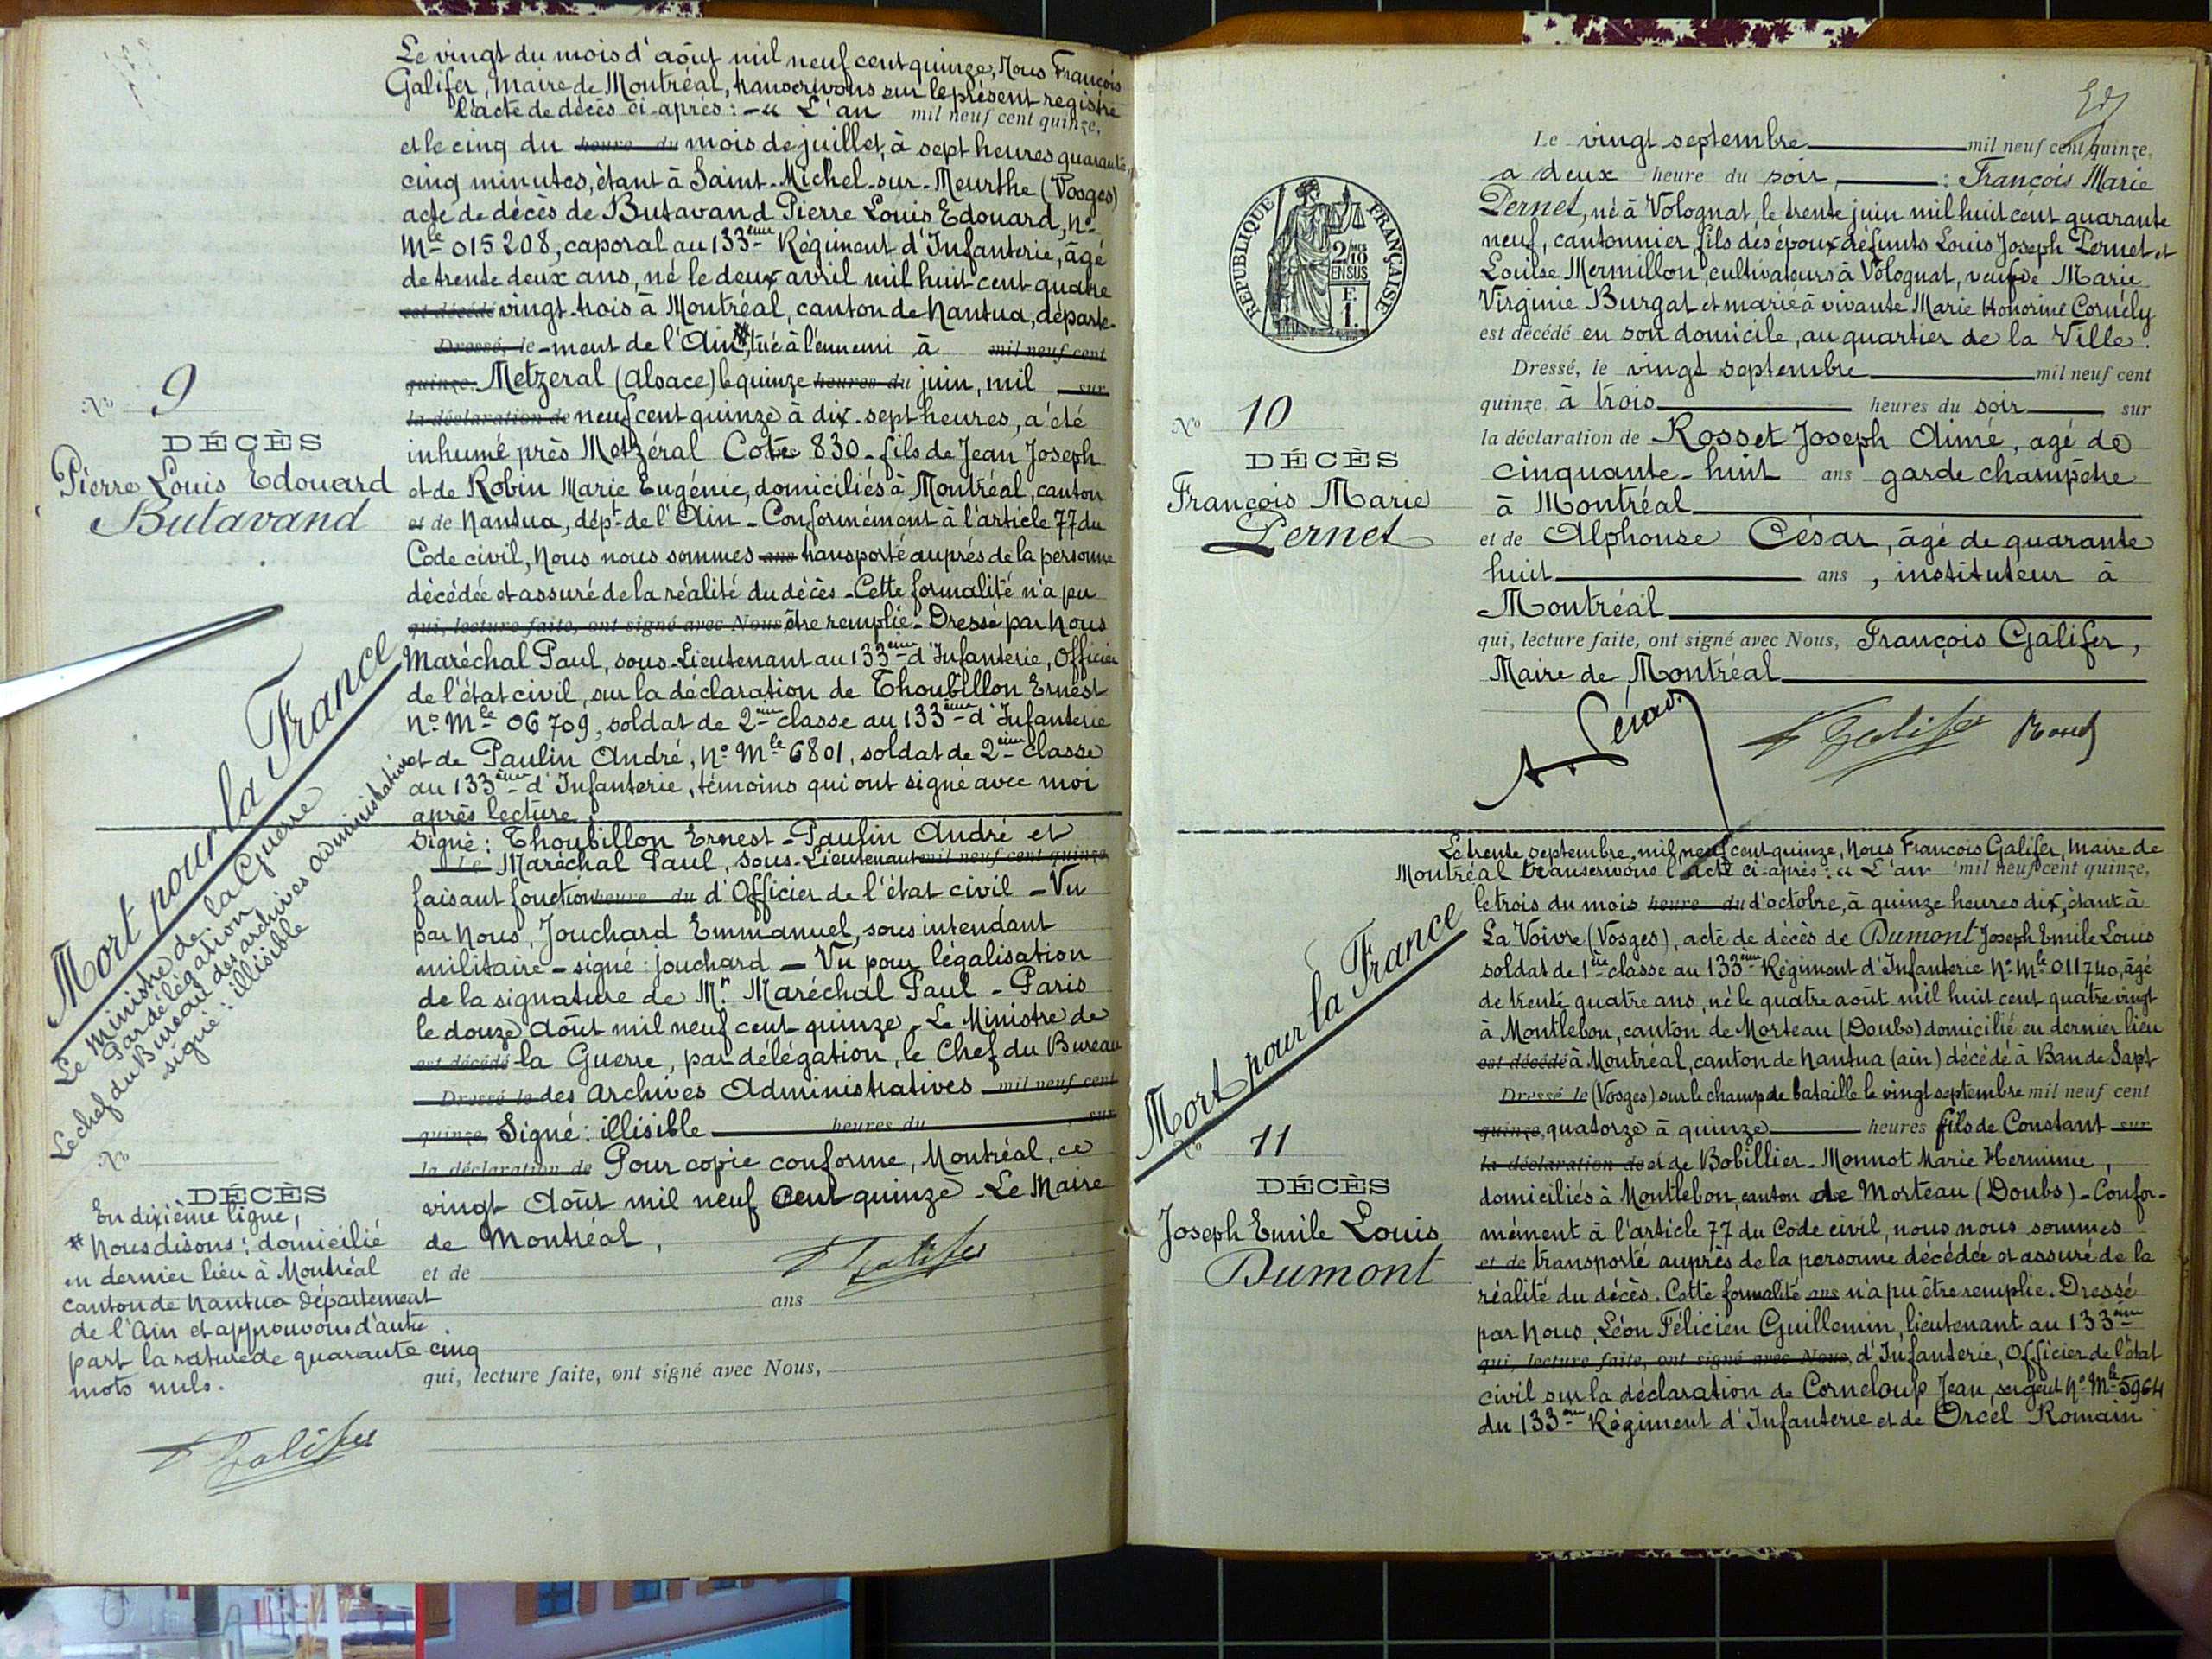 Le vingt du mois d'août mil neuf cent quinze, Nous François
Galifer, Maire de Montréal, transcrivons sur le présent registre
l'acte de décès ci-après : - « L'an mil neuf cent quinze,
et le cinq du heure du mois de juillet, à sept heures quarante
cinq minutes, étant à Saint-Michel-sur-Meurthe (Vosges)
acte de décès de Butavand Pierre Louis Edouard, No
Mle 015208, caporal au 133ème Régiment d'Infanterie, âgé
de trente deux ans, né le deux avril mil huit cent quatre
est décédé vingt-trois à Montréal, canton de Nantua, départe-
Dressé, le -ment de l'Ain # tué à l'ennemi à mil neuf cent
quinze, Metzeral (Alsace) le quinze heures du juin, mil sur
la déclaration de neuf cent quinze à dix-sept heures, a été
inhumé près Metzéral Cote 830 - fils de Jean Joseph
et de Robin Marie Eugénie, domiciliés à Montréal, canton
et de Nantua, dépt de l'Ain - Conformément à l'article 77 du
Code civil, Nous nous sommes ans transporté auprès de la personne
décédée et assuré de la réalité du décès - Cette formalité n'a pu
qui, lecture faite, ont signé avec Nous être remplie - Dressé par Nous
Maréchal Paul, sous-Lieutenant au 133ème d'Infanterie, Officier
de l'état civil, sur la déclaration de Thoubillon Ernest
No Mle 06709, soldat de 2ème classe au 133ème d'Infanterie
et de Paulin André, No Mle 6801, soldat de 2ème classe
au 133ème d'Infanterie, témoins qui ont signé avec moi
après lecture
signé : Thoubillon Ernest - Paulin André et
Le Maréchal Paul, sous-Lieutenant mil neuf cent quinze,
faisant fonction heure du d'Officier de l'état civil - Vu
par Nous, Jouchard Emmanuel, sous intendant
militaire - signé : jouchard - Vu pour légalisation
de la signature de Mr Maréchal Paul - Paris
le douze Août mil neuf cent quinze - Le Ministre de
est décédé la Guerre, par délégation, le Chef du Bureau
Dressé le des Archives Administratives mil neuf cent
quinze, Signé : illisible heures du sur
la déclaration de Pour copie conforme, Montréal, ce
vingt Août mil neuf cent quinze - Le Maire
de Montréal,
F Galifer
et de
ans
qui, lecture faite, ont signé avec Nous,
No 9
DÉCÈS
Pierre Louis Edouard
Butavand
Mort pour la France
Le Ministre de la Guerre
Par délégation
Le chef du Bureau des archives administratives
signé : illisible
No
DÉCÈS
En dixième ligne,
# Nous disons : domicilié
en dernier lieu à Montréal
canton de Nantua département
de l'Ain et approuvons d'autre
part la rature de quarante cinq
mots nuls.
F Galifer
RÉPUBLIQUE FRANÇAISE
2 MES
10
EN SUS
F.
1.
Le vingt septembre mil neuf cent quinze,
a deux heure du soir, : François Marie
Pernet, né à Volognat, le trente juin mil huit cent quarante
neuf, cantonnier, fils des époux défunts Louis Joseph Pernet et
Louise Mermillon, cultivateurs à Volognat, veuf de Marie
Virginie Burgat et marié à vivante Marie Honorine Cornély
est décédé en son domicile, au quartier de la Ville.
Dressé, le vingt septembre mil neuf cent
quinze, à trois heures du soir, sur
la déclaration de Rosset Joseph Aimé, agé de
cinquante-huit ans garde champêtre
à Montréal
et de Alphonse César, âgé de quarante
huit ans, instituteur à
Montréal
qui, lecture faite, ont signé avec Nous, François Galifer,
Maire de Montréal
F Galifer
No 10
DÉCÈS
François Marie
Pernet
Le trente septembre, mil neuf cent quinze, Nous François Galifer, Maire de
Montréal transcrivons l'acte ci-après : « L'an mil neuf cent quinze,
le trois du mois heure du d'octobre, à quinze heures dix, étant à
La Voivre (Vosges), acte de décès de Dumont Joseph Emile Louis
soldat de 1ère classe au 133ème Régiment d'Infanterie No Mle 011740, âgé
de trente quatre ans, né le quatre août mil huit cent quatre vingt
à Montlebon, canton de Morteau (Doubs) domicilié en dernier lieu
est décédé à Montréal, canton de Nantua (ain) décédé à Ban de Sapt
Dressé le (Vosges) sur le champ de bataille le vingt septembre mil neuf cent
quinze, quatorze à quinze heures fils de Constant sur
la déclaration de et de Bobillier-Monnot Marie Herminie,
domiciliés à Montlebon, canton de Morteau (Doubs) - Confor-
mément à l'article 77 du Code civil, nous nous sommes
et de transporté auprès de la personne décédée et assuré de la
réalité du décès. Cette formalité ans n'a pu être remplie. Dressé
par Nous, Léon Félicien Guillemin, lieutenant au 133ème
qui, lecture faite, ont signé avec Nous, d'Infanterie, Officier de l'état
civil sur la déclaration de Corneloup Jean, sergent No Mle 5964
du 133ème Régiment d'Infanterie et de Orcel Romain
Mort pour la France
No 11
DÉCÈS
Joseph Emile Louis
Dumont